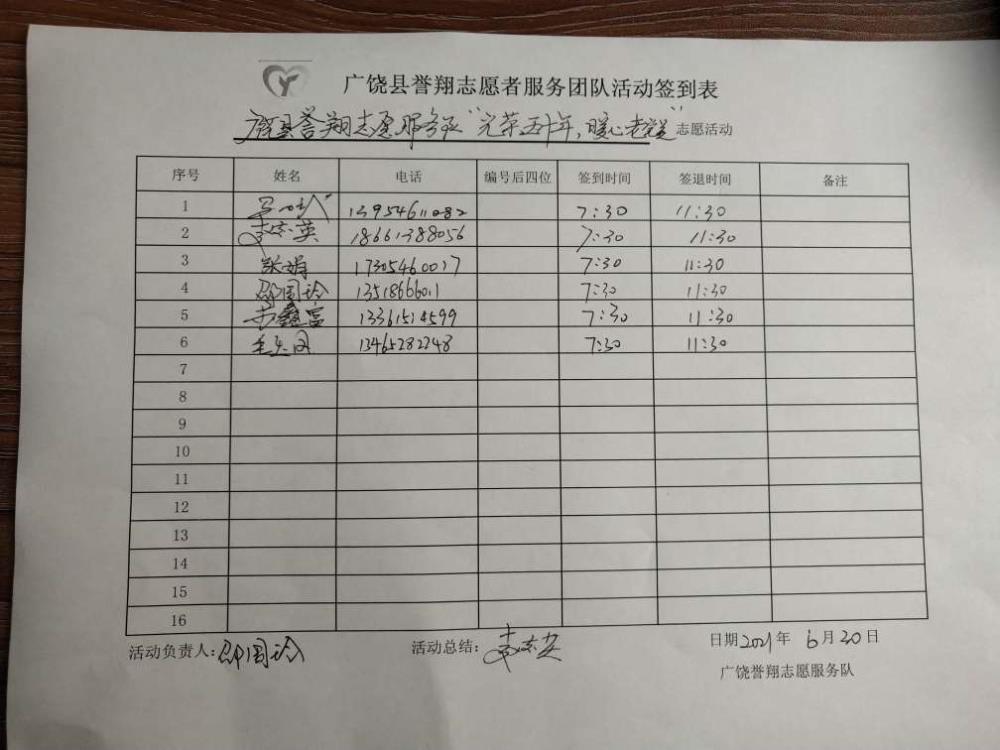 广饶县誉翔志愿者服务团队活动签到表
广饶县誉翔志愿服务队“光荣五十年,暖心老党员”志愿活动
序号 姓名 电话 编号后四位 签到时间 签退时间 备注
1 13954611082 7:30 11:30
2 英 18661388056 7:30 11:30
3 张娟 17305460017 7:30 11:30
4 邵国玲 1351866011 7:30 11:30
5 鑫富 13361514599 7:30 11:30
6 毛 13465282248 7:30 11:30
7
8
9
10
11
12
13
14
15
16
活动负责人:邵国玲 活动总结: 日期2021年 6月20日
广饶誉翔志愿服务队